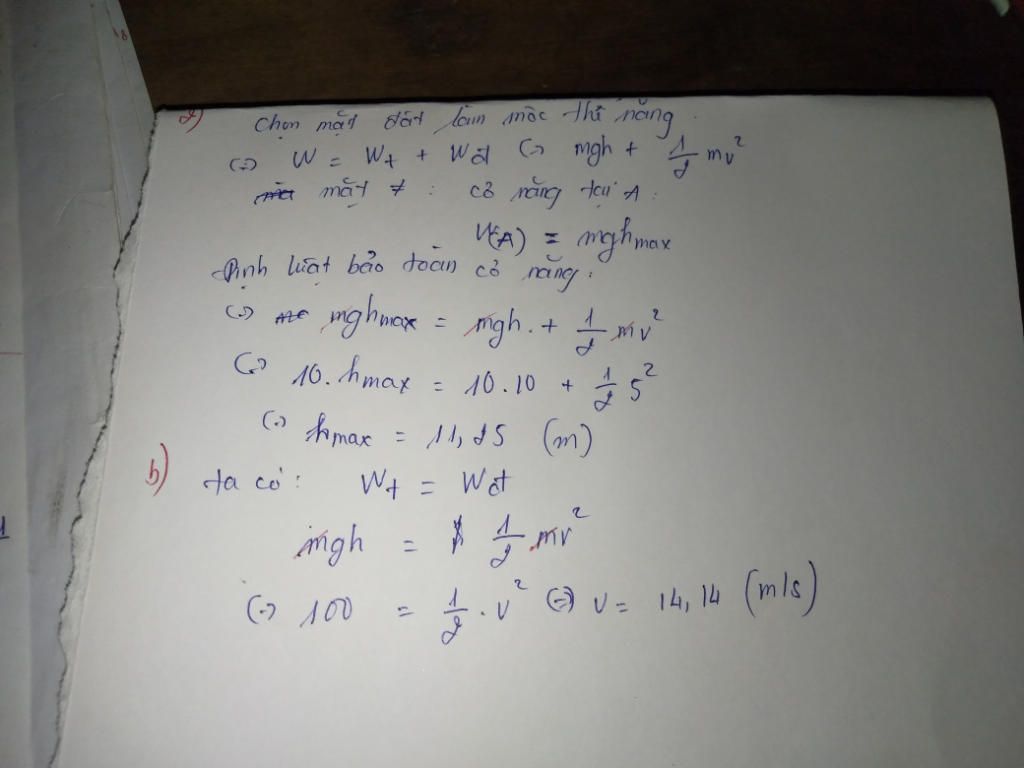 a) Chọn mặt đất làm mốc thế năng.
(=) W = Wt + Wđ (=) mgh + 1/2 mv²
mặt ≠ : cơ năng tại A :
W(A) = mghmax
Định luật bảo toàn cơ năng :
(=) mghmax = mgh. + 1/2 mv²
(=) 10. hmax = 10.10 + 1/2 5²
(=) hmax = 11,25 (m)
b) ta có : Wt = Wđ
mgh = 1/2 mv²
(=) 100 = 1/2 . v² (=) v = 14,14 (m/s)